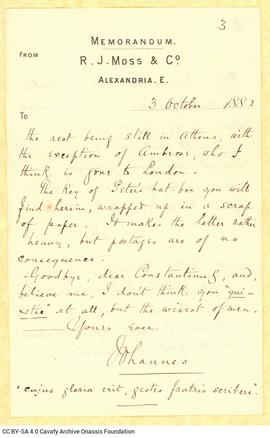 3
MEMORANDUM.
FROM
R. J. MOSS & Co
ALEXANDRIA. E.
3 October 1882
TO
the rest being still in Athens, with
the exception of Ambrose, who I
think is gone to London.
The key of Peter's hat-box you will
find herein, wrapped up in a scrap
of paper. It makes the letter rather
heavy, but postages are of no
consequence.
Goodbye, dear Constantine, and,
believe me, I don't think you "qui-
xotic" at all, but the wisest of men.
Yours ever
Johannes
"cujus gloria erit, gestes fratris scriberi".
CC BY-SA 4.0 Cavafy Archive Onassis Foundation